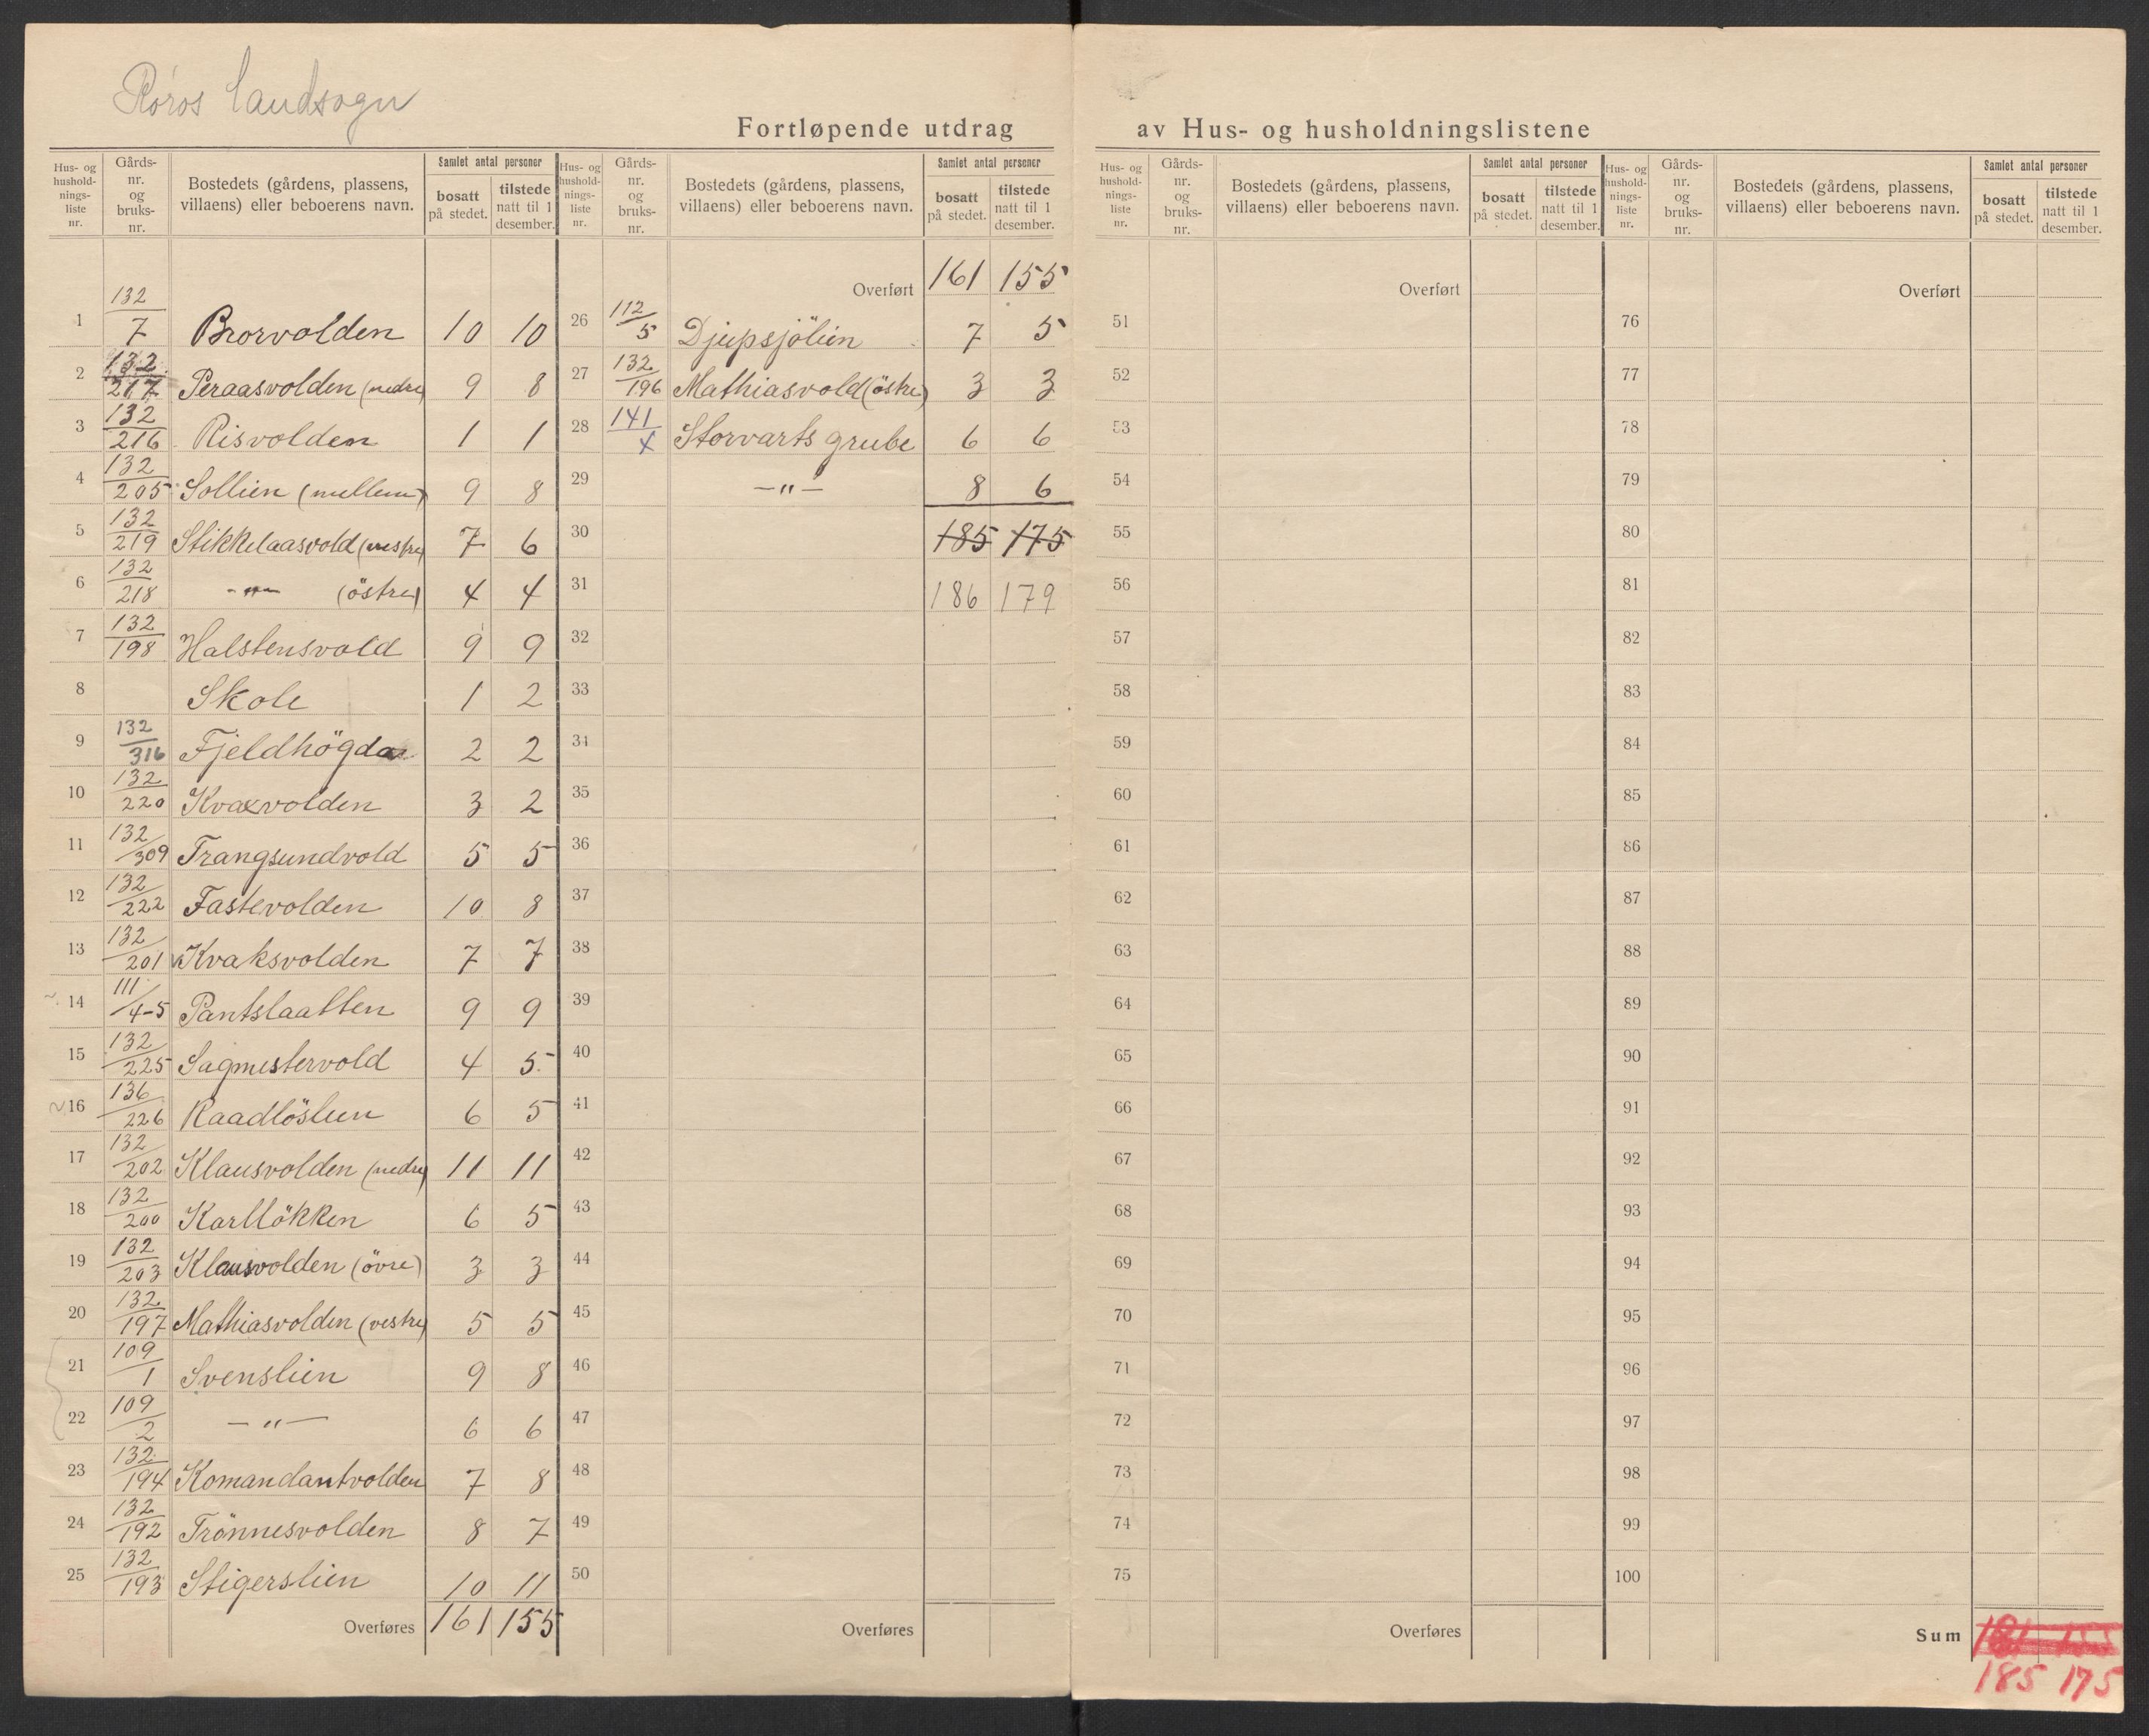 Röros Landsogn
Fortløpende utdrag av Hus- og husholdningslistene
Hus- og hushold-nings-liste nr. Gårds-nr. og bruks-nr. Bostedets (gårdens, plassens, villaens) eller beboerens navn. Samlet antal personer bosatt på stedet. tilstede natt til 1 desember.
1 132/7 Brorvolden 10 10
2 132/217 Peraasvolden (nedre) 9 8
3 132/216 Risvolden 1 1
4 132/205 Sollien (mellem) 9 8
5 132/219 Stikkelaasvold (vestre) 7 6
6 132/218 -"- (östre) 4 4
7 132/198 Halstensvold 9 9
8 Skole 1 2
9 132/316 Fjeldhögda 2 2
10 132/220 Kvaxvolden 3 2
11 132/309 Trangsundvold 5 5
12 132/222 Fastevolden 10 8
13 132/201 Kvaksvolden 7 7
14 111/4-5 Pantslaatten 9 9
15 132/225 Sagmestervold 4 5
16 136/226 Raadlöslien 6 5
17 132/202 Klausvolden (nedre) 11 11
18 132/200 Karllökken 6 5
19 132/203 Klausvolden (övre) 3 3
20 132/197 Mathiasvolden (vestre) 5 5
21 109/1 Svenslien 9 8
22 109/2 -"- 6 6
23 132/194 Komandantvolden 7 8
24 132/192 Trönnesvolden 8 7
25 132/193 Stigerslien 10 11
Overføres 161 155
Hus- og hushold-nings-liste nr. Gårds-nr. og bruks-nr. Bostedets (gårdens, plassens, villaens) eller beboerens navn. Samlet antal personer bosatt på stedet. tilstede natt til 1 desember.
Overført 161 155
26 112/5 Djupsjölien 7 5
27 132/196 Mathiasvold (östre) 3 3
28 141/x Storvarts grube 6 6
29 -"- 8 6
30 185 175
31 186 179
32
33
34
35
36
37
38
39
40
41
42
43
44
45
46
47
48
49
50
Overføres
Hus- og hushold-nings-liste nr. Gårds-nr. og bruks-nr. Bostedets (gårdens, plassens, villaens) eller beboerens navn. Samlet antal personer bosatt på stedet. tilstede natt til 1 desember.
Overført
51
52
53
54
55
56
57
58
59
60
61
62
63
64
65
66
67
68
69
70
71
72
73
74
75
Overføres
Hus- og hushold-nings-liste nr. Gårds-nr. og bruks-nr. Bostedets (gårdens, plassens, villaens) eller beboerens navn. Samlet antal personer bosatt på stedet. tilstede natt til 1 desember.
Overført
76
77
78
79
80
81
82
83
84
85
86
87
88
89
90
91
92
93
94
95
96
97
98
99
100
Sum 161 155
185 175